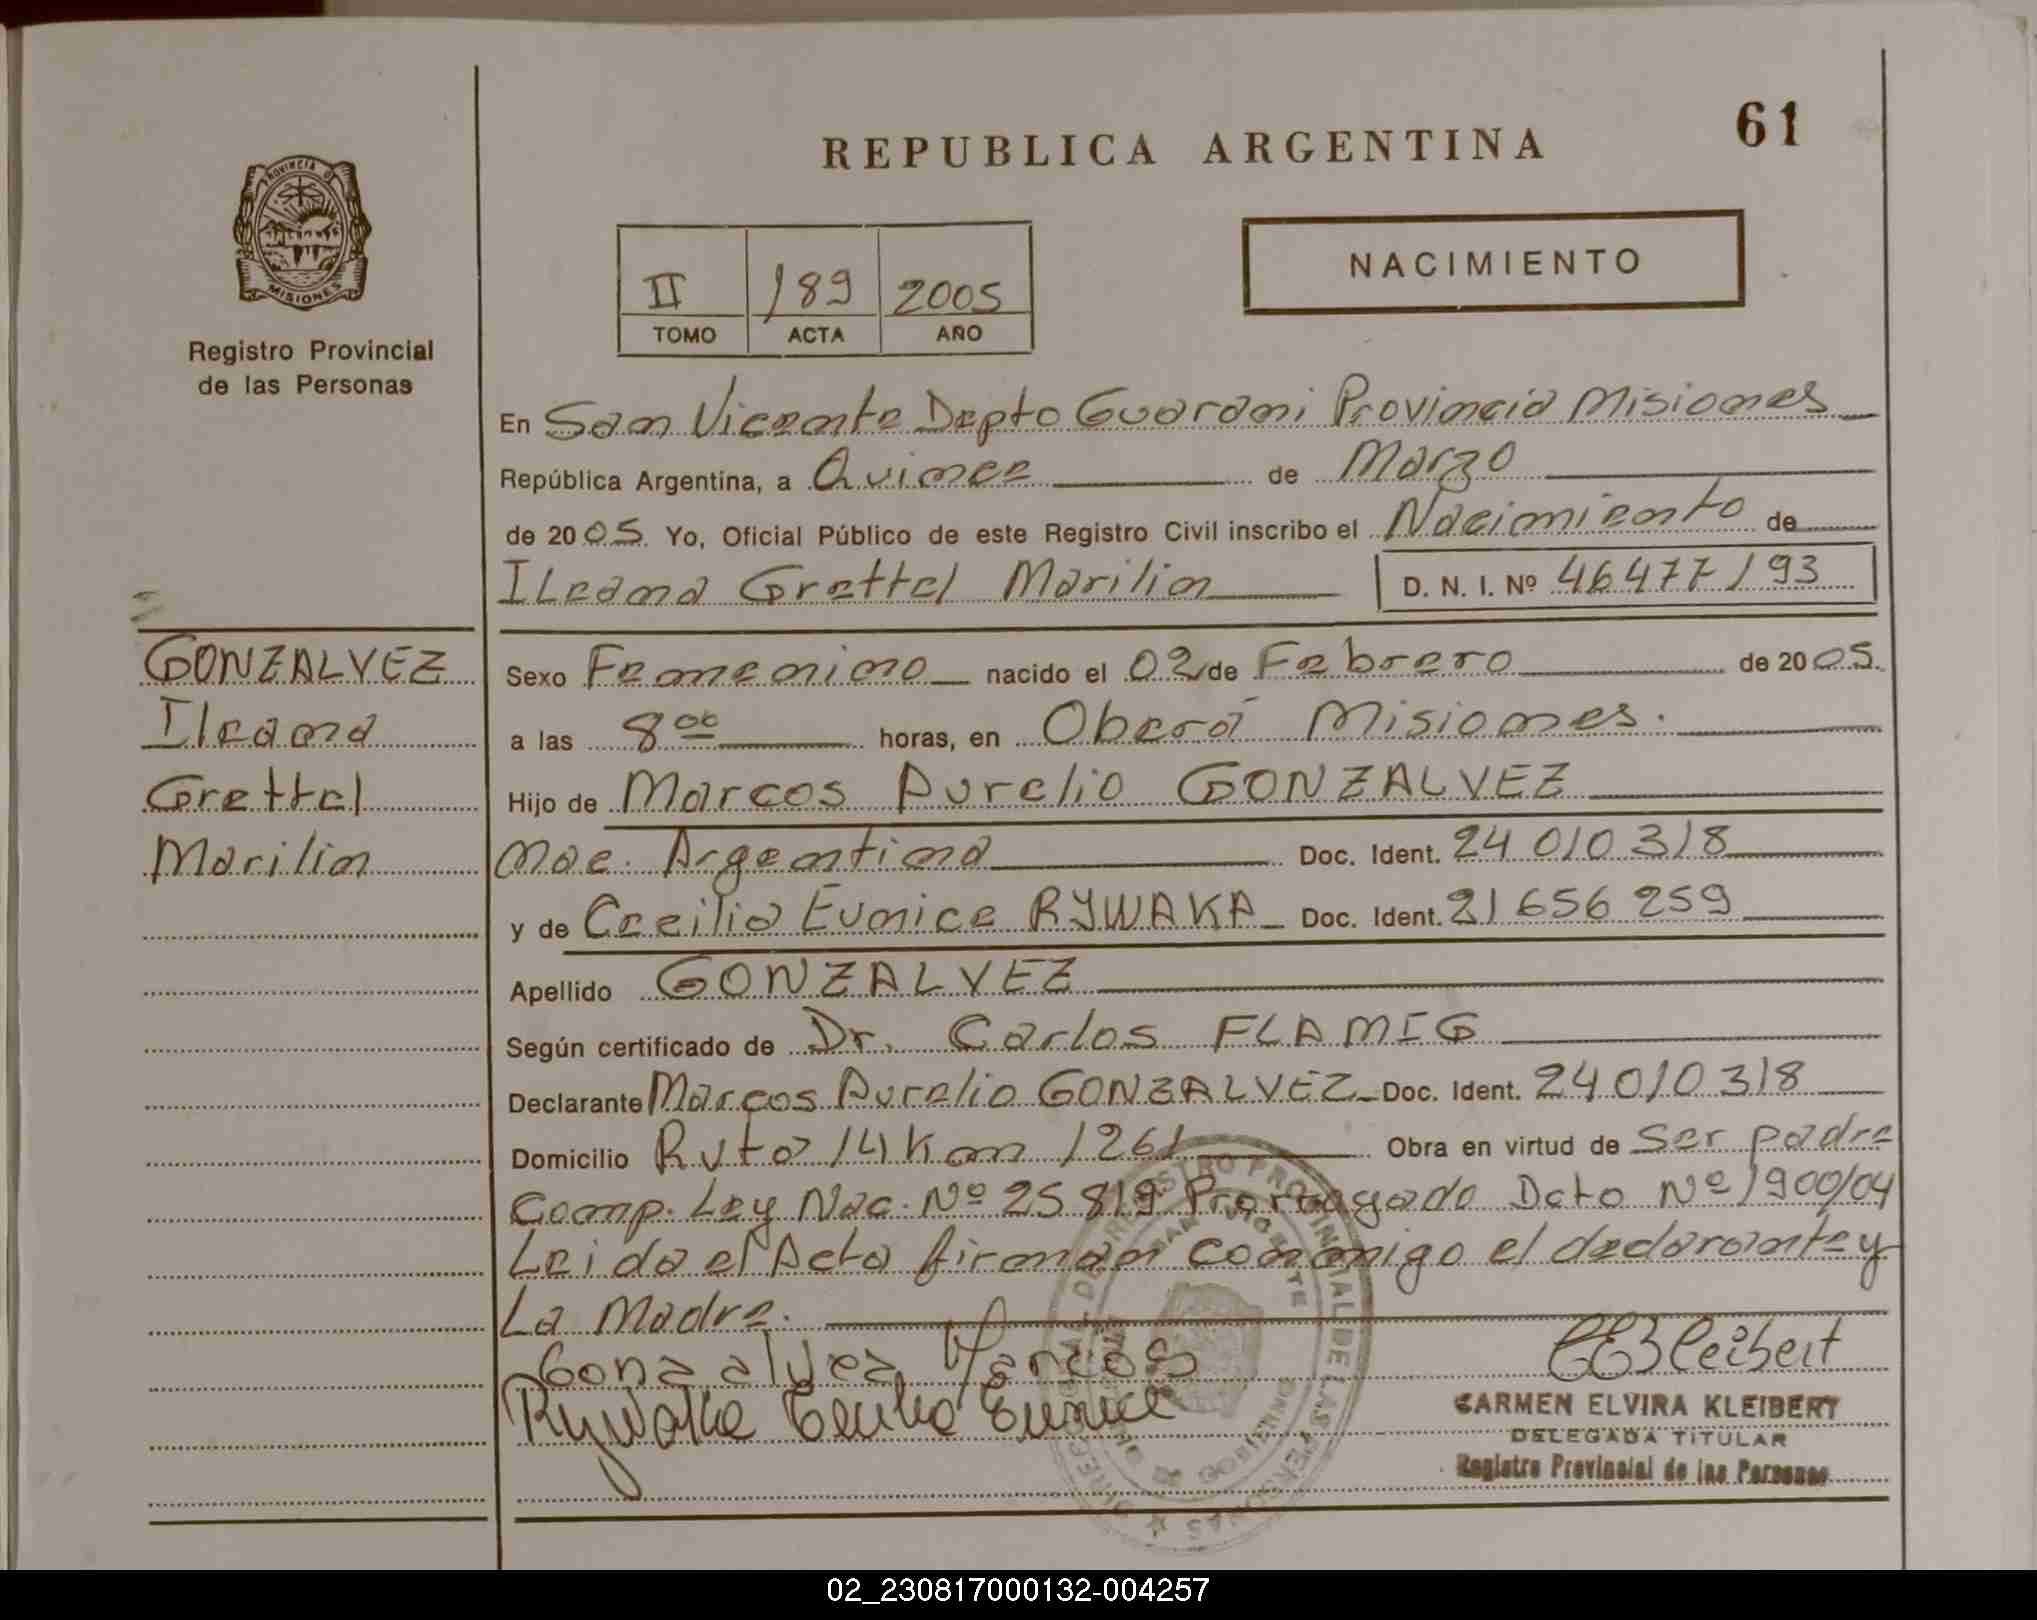 61
REPUBLICA ARGENTINA
PROVINCIA D
MISIONES
Registro Provincial
de las Personas
NACIMIENTO
II 189 2005
TOMO ACTA AÑO
En San Vicente Depto Guarani Provincia Misiones
República Argentina, a Quince de Marzo
de 2005 Yo, Oficial Público de este Registro Civil inscribo el Nacimiento de
ILeana Grettel Marilin D. N. I. Nº 46477193
GONZALVEZ
Ileana
Grettel
Marilin
Sexo Femenino nacido el 02 de Febrero de 2005.
a las 8 00 horas, en Oberá Misiones.
Hijo de Marcos Aurelio GONZALVEZ
nac. Argentina Doc. Ident. 24 010 318
y de Cecilia Eunice RYWAKA Doc. Ident. 21 656 259
Apellido GONZALVEZ
Según certificado de Dr. Carlos FLAMIG
Declarante Marcos Aurelio GONZALVEZ Doc. Ident. 24 010 318
Domicilio Ruta 14 Km 1261 Obra en virtud de ser padre
Comp. Ley Nac. Nº 25 819 Prorrogado Dcto Nº 1900/04
Leida el Acta firman conmigo el declarante y
La Madre.
Gonzalvez Marcos
Rywaka Cecilia Eunice
CEKleibert
CARMEN ELVIRA KLEIBERT
DELEGADA TITULAR
Registro Provincial de las Personas
REGISTRO PROVINCIAL DE LAS PERSONAS
SAN VICENTE
GOBIERNO
02_230817000132-004257